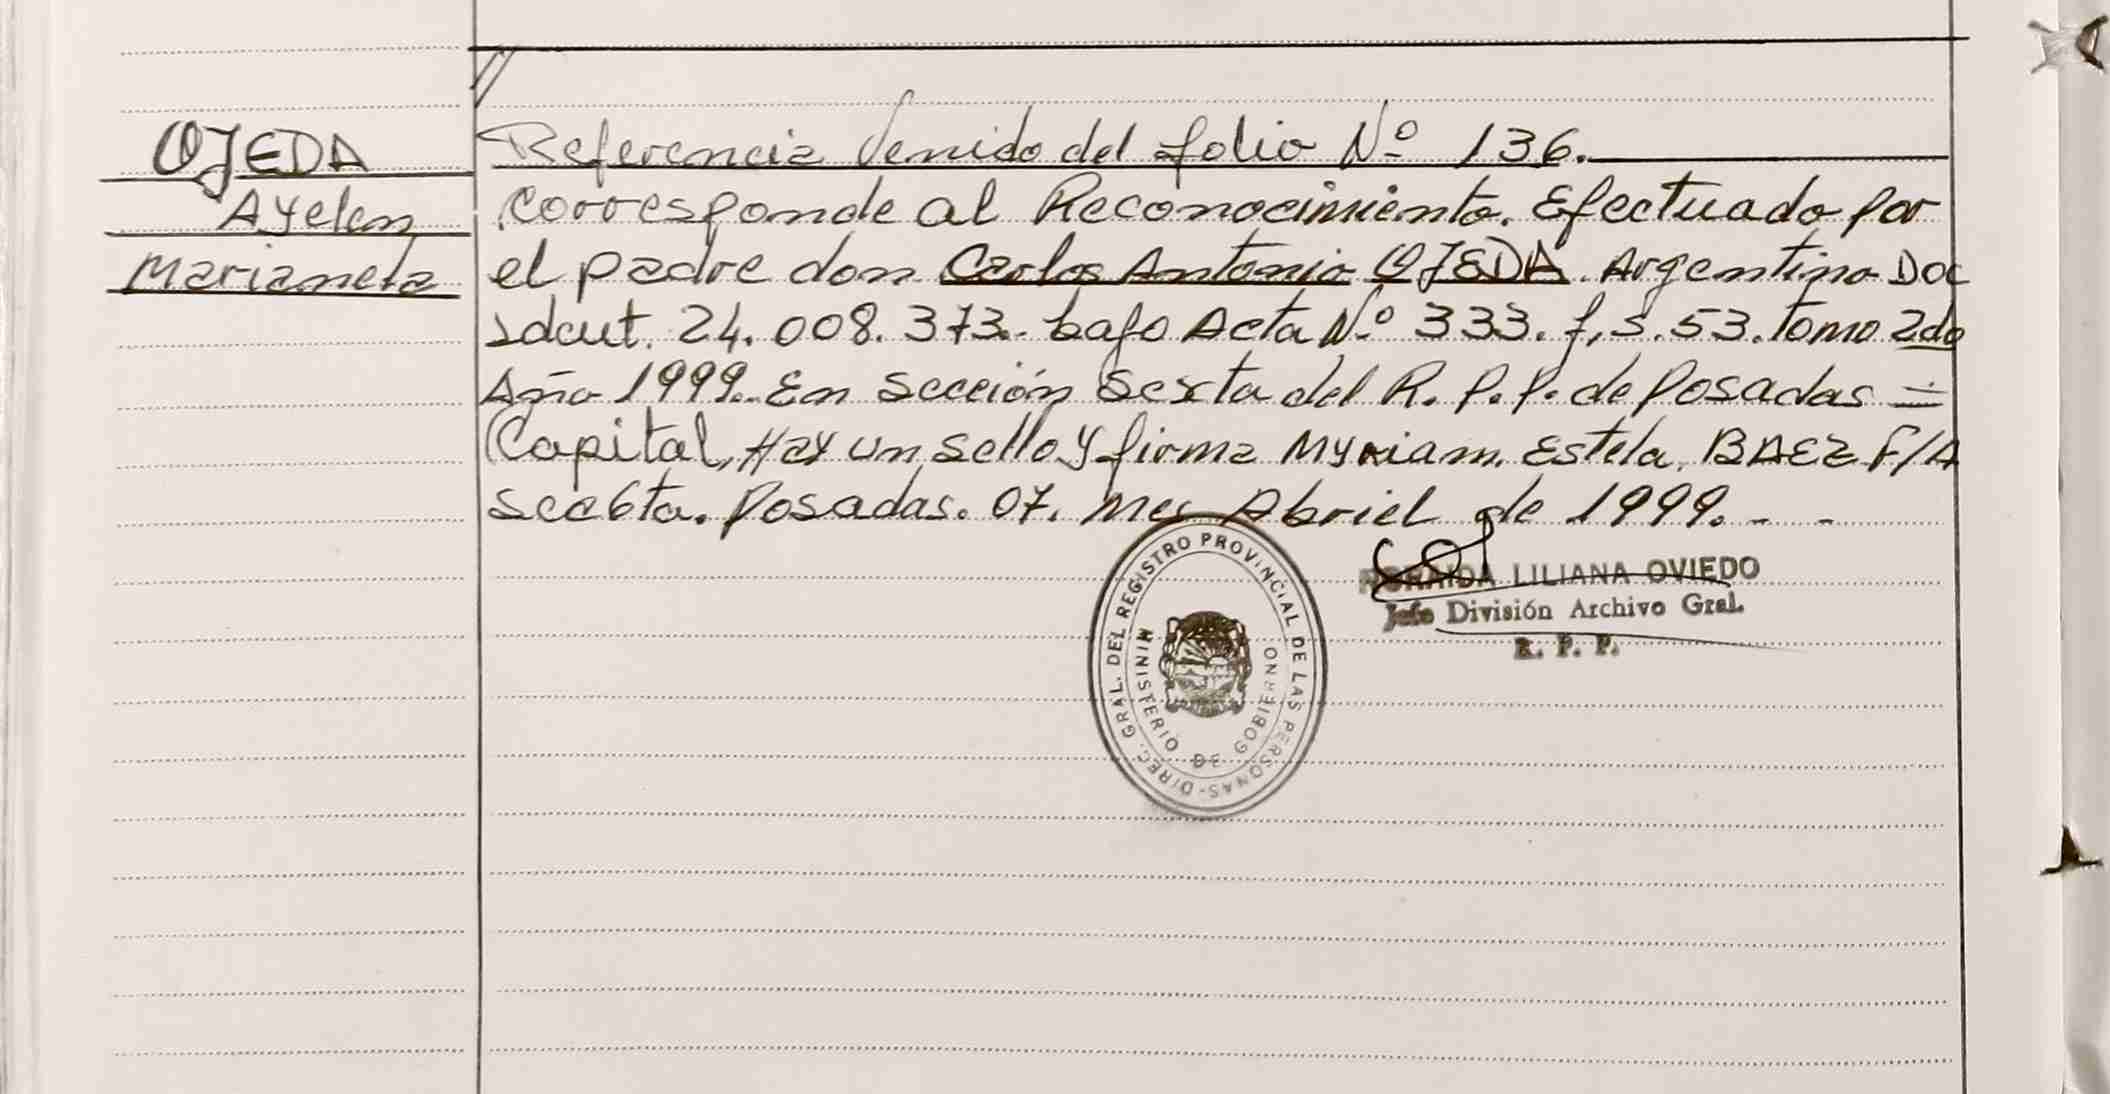 OJEDA
Ayelen
Marianela
Referencia Venido del folio Nº 136.
Corresponde al Reconocimiento. Efectuado por
el padre don Carlos Antonio OJEDA. Argentino Doc
Idcut. 24.008.373.- bajo Acta Nº 333. f,s.53. Tomo 2do
Año 1999. En sección Sexta del R.P.P. de Posadas =
Capital, Hay un sello y firma Myriam. Estela. BAEZ F/A
Secc6ta. Posadas. 07. Mes Abriel de 1999. - -
DIREC. GRAL. DEL REGISTRO PROVINCIAL DE LAS PERSONAS-
MINISTERIO DE GOBIERNO
LILIANA OVIEDO
Jefe División Archivo Gral.
R. P. P.